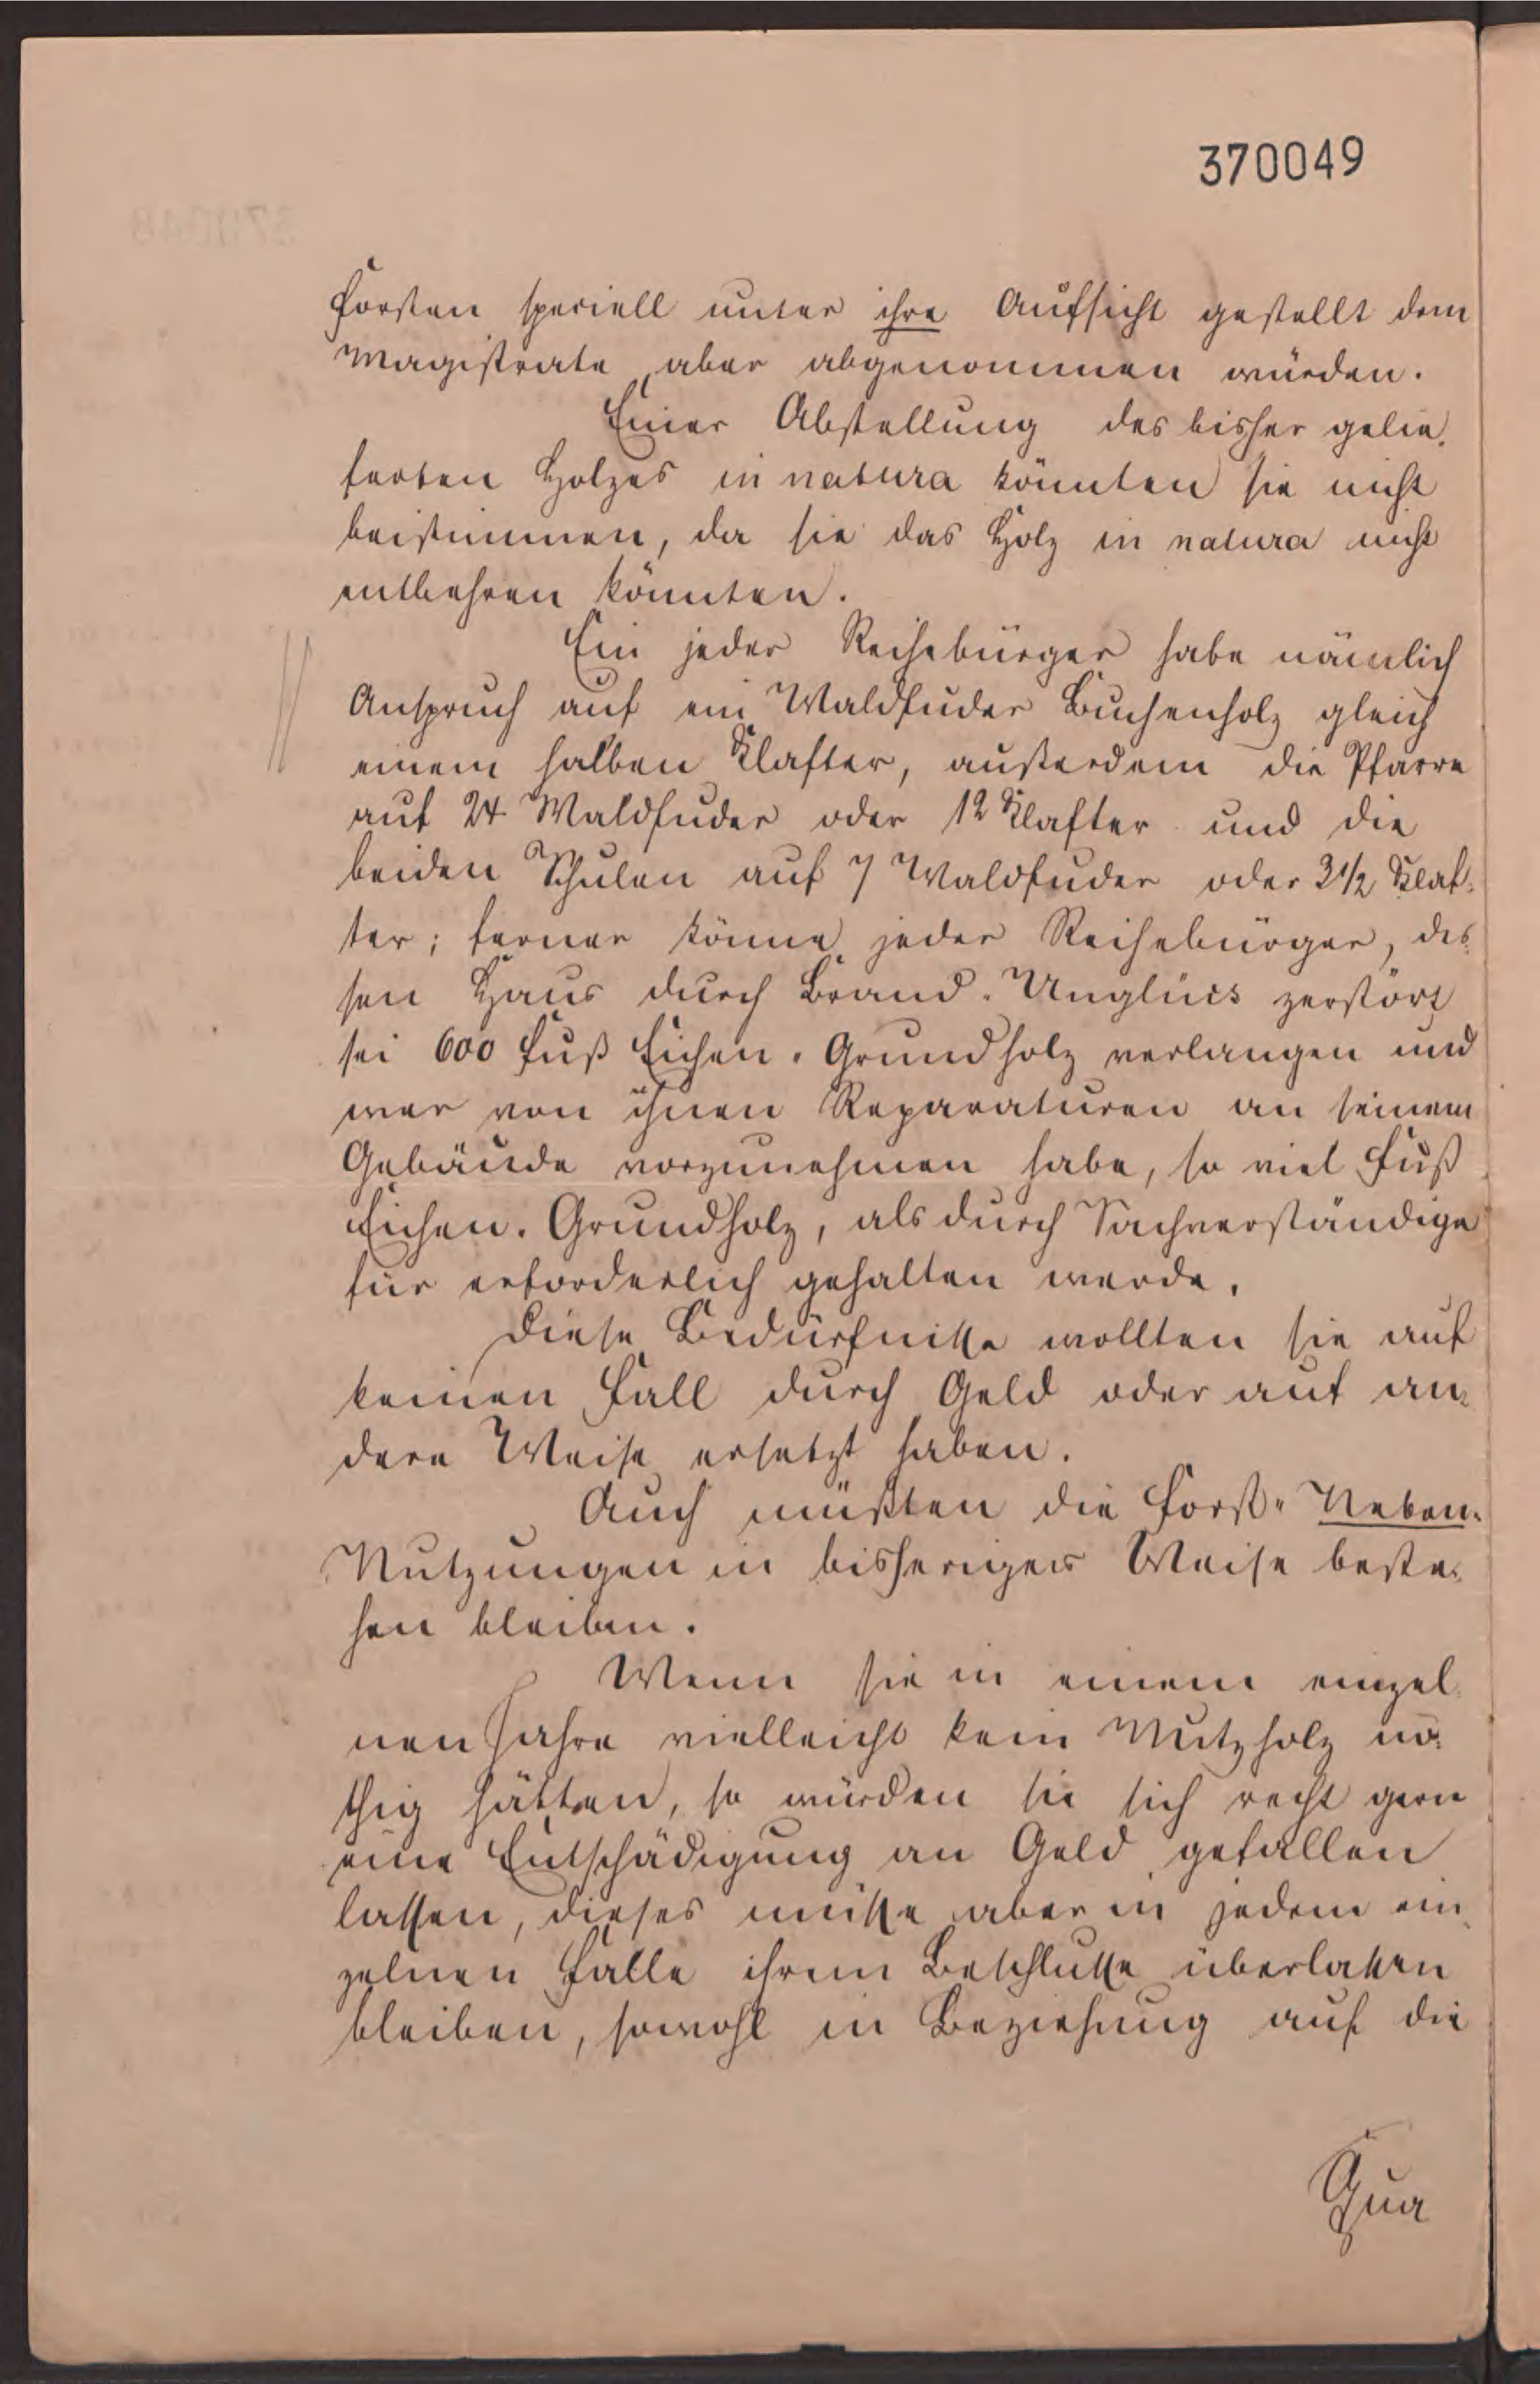 370049
Forsten speciell unter ihre Aufsicht gestellt dem
Magistrate aber abgenommen würden.
Einer Abstellung des bisher gelie-
ferten Holzes in natura könnten sie nicht
beistimmen, da sie das Holz in natura nicht
entbehren könnten.
Ein jeder Reihebürger habe nämlich
Anspruch auf ein Waldfuder Buchenholz gleich
einem halben Klafter, außerdem die Pfarre
auf 24 Waldfuder oder 12 Klafter und die
beiden Schulen auf 7 Waldfuder oder 3 1/2 Klaf-
ter; ferner könne jeder Reihebürger, des-
sen Haus durch Brand-Unglück zerstört
sei 600 Fuß Eichen-Grundholz verlangen und
wer von ihnen Reparaturen an seinem
Gebäude vorzunehmen habe, so viel Fuß
Eichen-Grundholz, als durch Sachverständige
für erforderlich gehalten werde.
Diese Bedürfnisse wollten sie auf
keinen Fall durch Geld oder auf an-
dere Weise ersetzt haben.
Auch müßten die Forst-Neben-
Nutzungen in bisheriger Weise beste-
hen bleiben.
Wenn sie in einem einzel-
nen Jahre vielleicht kein Nutzholz nö-
thig hätten, so würden sie sich recht gern
eine Entschädigung an Geld gefallen
lassen, dieses müsse aber in jedem ein-
zelnen Falle ihrem Beschlusse überlassen
bleiben, sowohl in Beziehung auf die
Qua